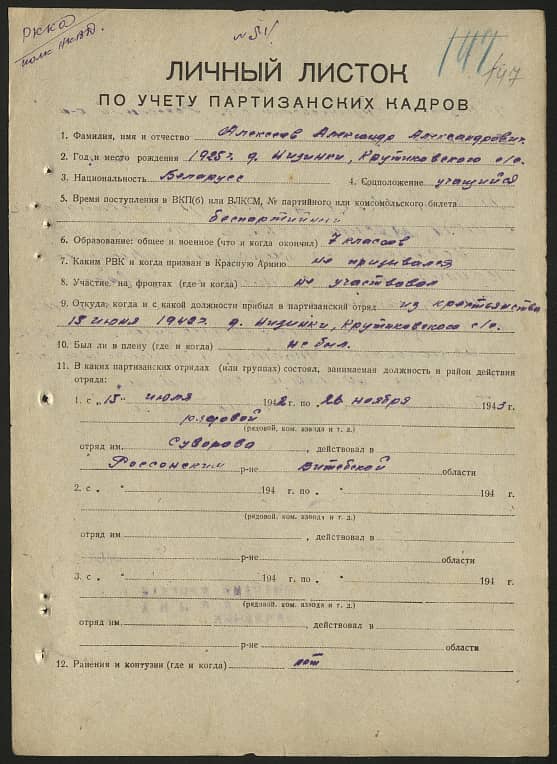 РККА
полк НКВД.
№ 51
147
147
ЛИЧНЫЙ ЛИСТОК
ПО УЧЕТУ ПАРТИЗАНСКИХ КАДРОВ
1. Фамилия, имя и отчество Алексеев Александр Александрович.
2. Год и место рождения 1925 г. д. Низинки, Крутиковского с/с.
3. Национальность Белорусс 4. Соцположение учащийся
5. Время поступления в ВКП(б) или ВЛКСМ, № партийного или комсомольского билета
беспартийный
6. Образование: общее и военное (что и когда окончил) 7 классов
7. Каким РВК и когда призван в Красную Армию не призывался
8. Участие на фронтах (где и когда) не участвовал
9. Откуда, когда и с какой должности прибыл в партизанский отряд из крестьянства
15 июня 1942 г. д. Низинки, Крутиковского с/с.
10. Был ли в плену (где и когда) не был.
11. В каких партизанских отрядах (или группах) состоял, занимаемая должность и район действия
отряда:
1. с „15" июля 1942 г. по „26 ноября 1943 г.
рядовой
(рядовой, ком. взвода и т. д.)
отряд им. Суворова, действовал в
Россонским р-не Витебской области
2. с „ " 194 г. по „ " 194 г.
(рядовой, ком. взвода и т. д.)
отряд им. , действовал в
р-не области
3. с „ " 194 г. по „ " 194 г.
(рядовой, ком. взвода и т. д.)
отряд им. , действовал в
р-не области
12. Ранения и контузии (где и когда) нет